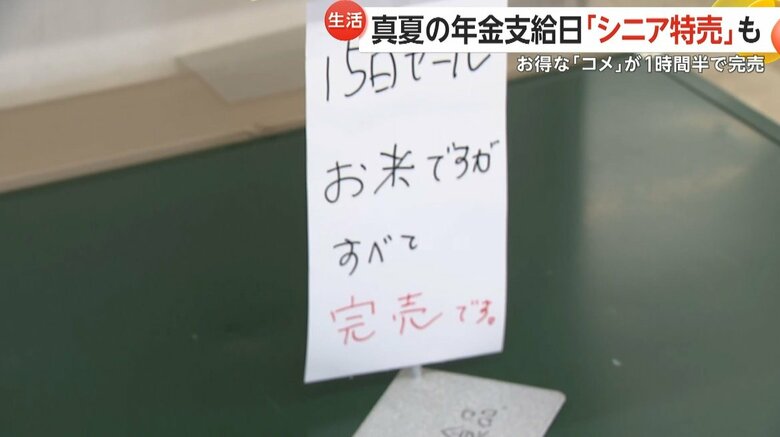 生活
真夏の年金支給日「シニア特売」も
お得な「コメ」が1時間半で完売
15日セール
お米ですが
すべて
完売です。